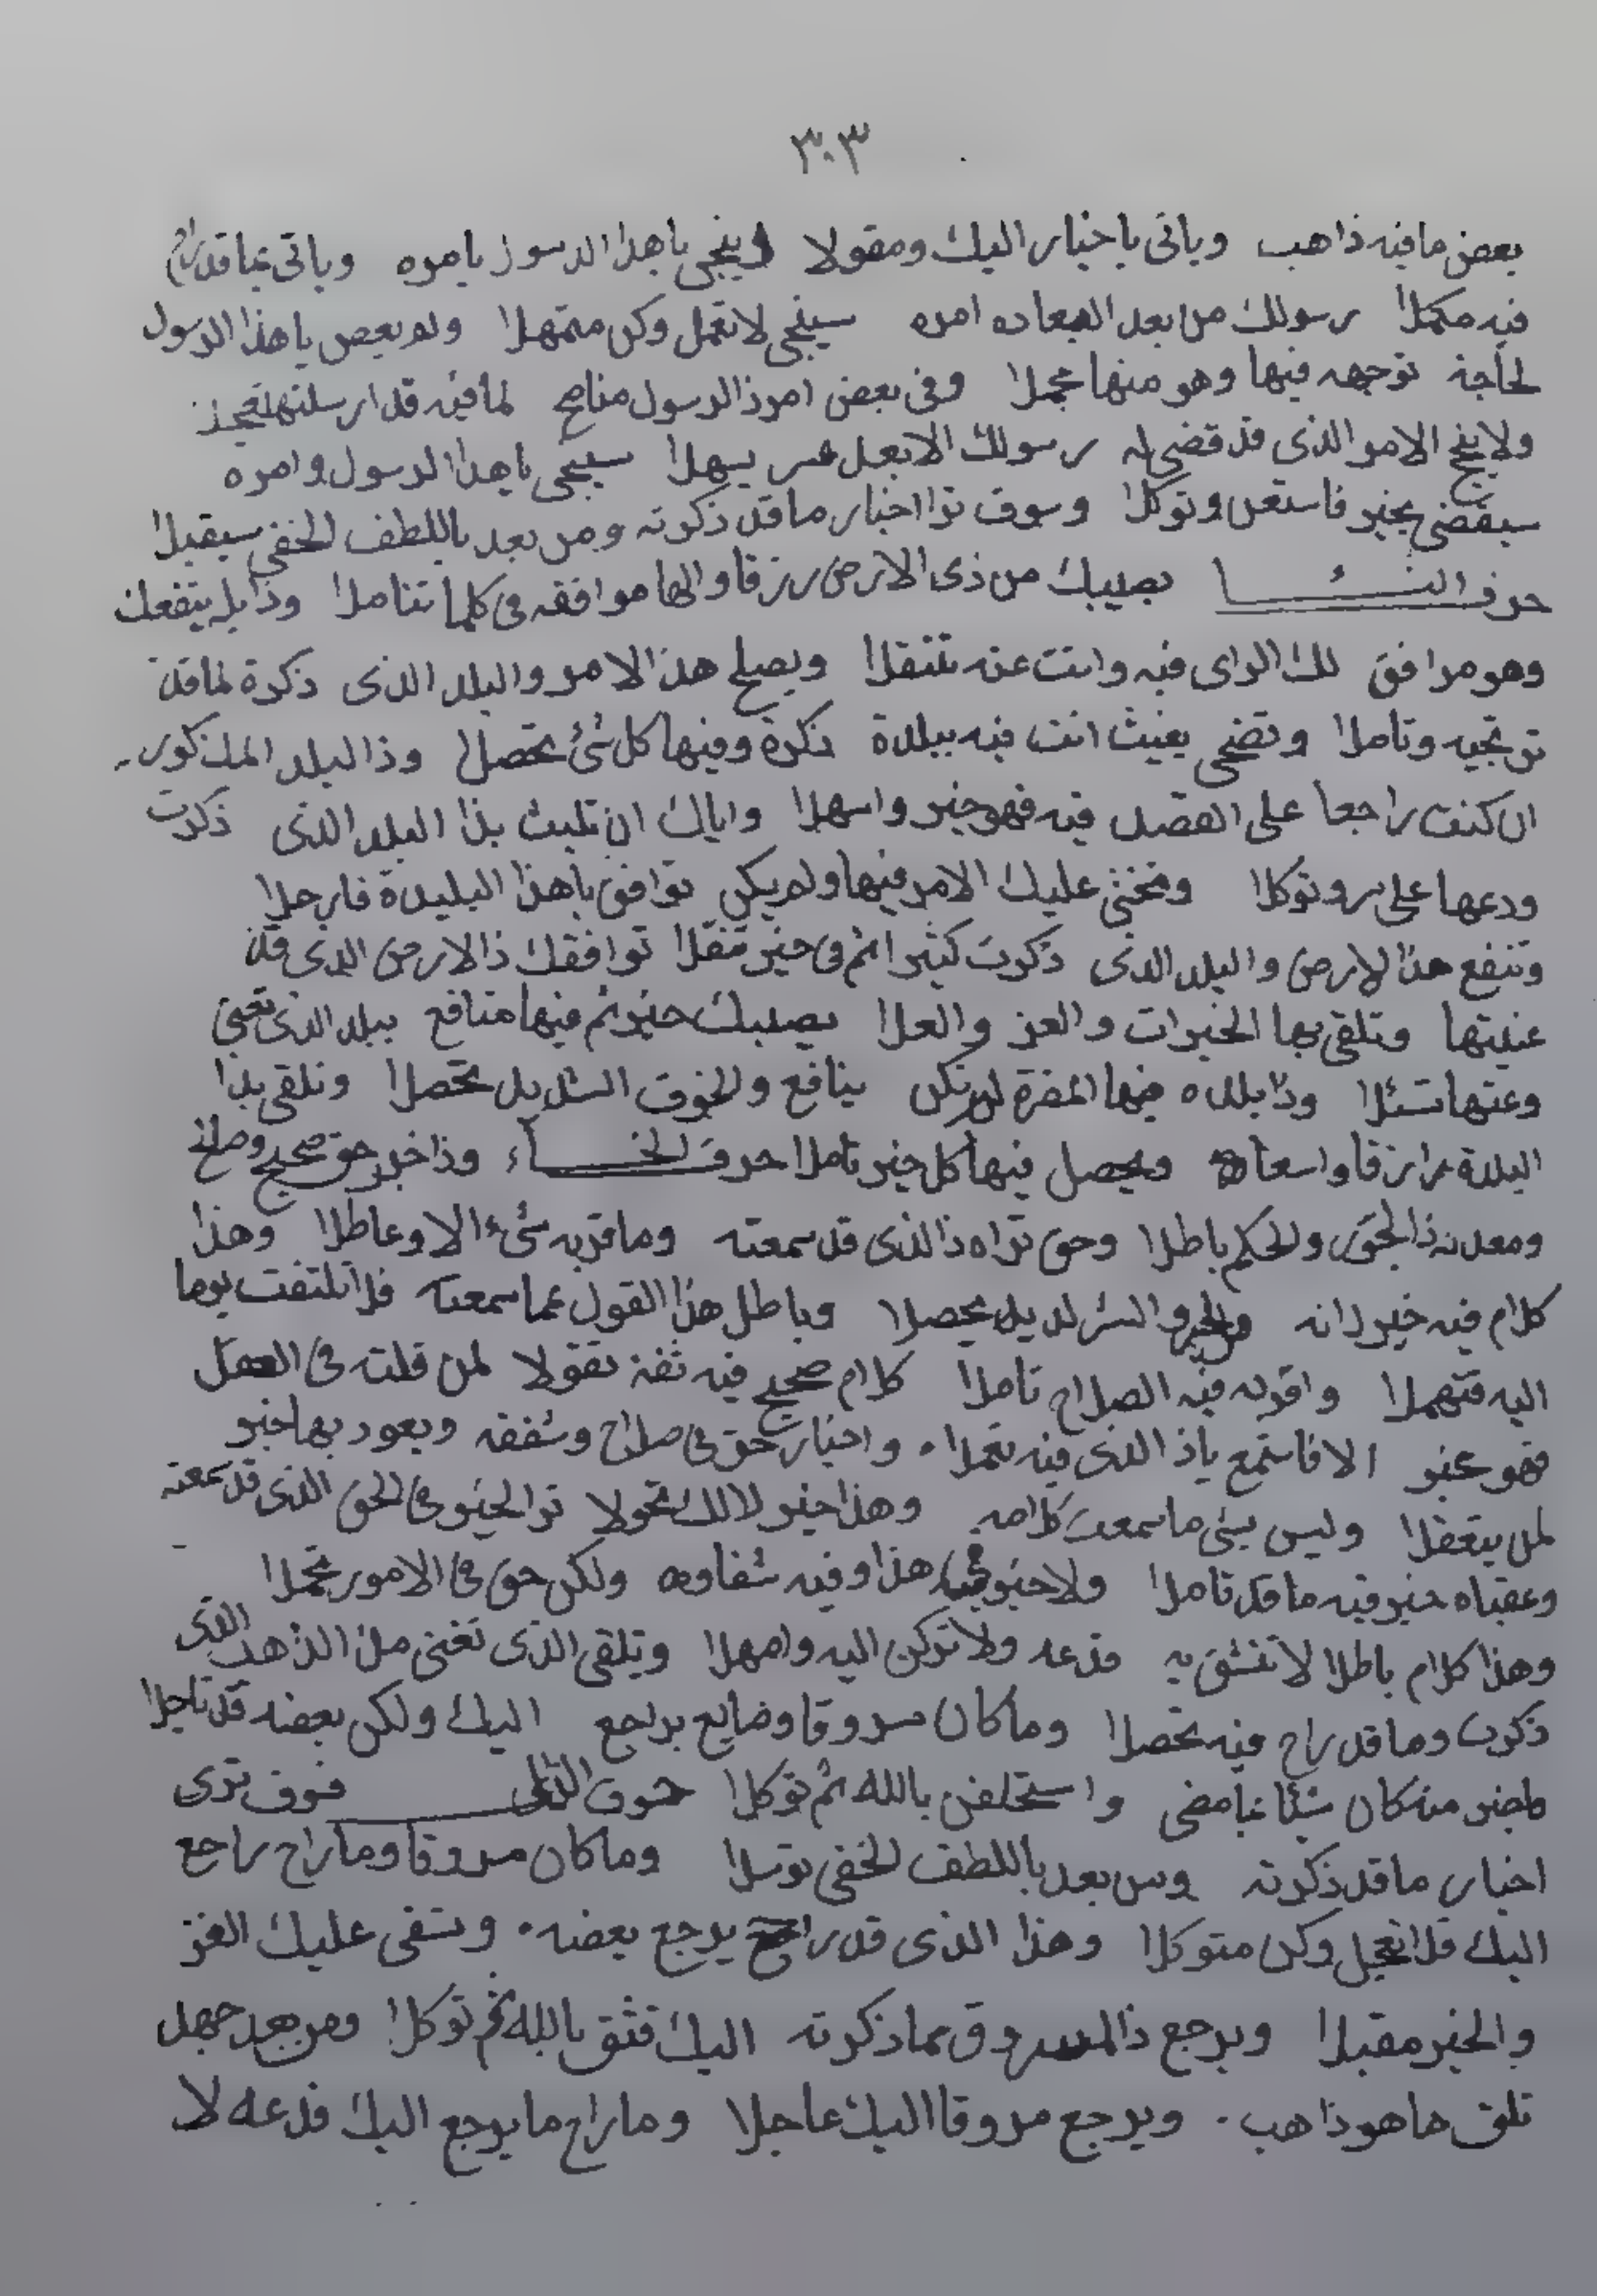 ٣٠٣
بعض مافيه ذاهب وياتى باخبار اليك ومقولا وينجى ياهذا الرسول بامره وياتى بما قد راح
فيه مكملا رسولك من بعد امره سينجى لا تعجل وكن متمهلا ولم يعص ياهذا الرسول
لحاجة توجهه فيها وهو منها مجملا وفى بعض امور ذا الرسول مناجح لما فيه قد ارسلتها
ولا ينجح الامر الذى قد قضى له رسولك الا بعد عسر يسهلا سينجى ياهذا الرسول وامره
سيقضى بخير فاستعن وتوكلا وسوف ترا اخبار ما قد ذكرته ومن بعد باللطف الخفى سيقبلا
حرف الثـــاء يصيبك من ذى الارض رزقا والها موافقه فى كلما تتاملا وذا بلد ينفعك
وهو موافق لك الراى فيه وانت عنه تنقلا ويصلح هذا الامر والبلد الذى ذكرة لما قد
ترتجيه وتاملا وتضحى بغيث انت فيه ببلدة ذكرة وفيها كل شئ تحصلا وذا البلد المذكور
ان كنت راجعا على القصد فيه فهو خير واسهلا واياك ان تلبث بذا البلد الذى ذكرت
ودعها على بر وتوكلا وتخشى عليك الامر فيها ولم يكن توافق ياهذا البليدة فارحلا
وتنفع هذا الارض والبلد الذى ذكرت كثيرا ثم فى خير تنقلا توافقك ذا الارض الذى قد
عنيتها وتلقى بها الخيرات والعز والعلا يصيبك خير ثم فيها منافع ببلد الذى تعنى
وعنها تسئلا وذا بلده فيها المضرة لم تكن ينافع والخوف الشديد تحصلا وتلقى بذا
البلدة رزقا واسعا ويحصل فيها كل خير تاملا حرف الخـــاء وذا خبر حق صحيح وصالح
ومعدنه ذا الحق والحكم باطلا وحق تراه ذا الذى قد سمعته وما قربه شئ الا وعاطلا وهذا
كلام فيه خير لانه والخير والشر لديه يحصلا وباطل هذا القول عما سمعته فلا تلتفت يوما
اليه فتهملا واقوله فيه الصلاح تاملا كلام صحيح فيه ثقة تقولا لمن قلت فى العقل
فهو مخبر الا فاستمع ياذا الذى فيه تعملا واخبار حق فى صلاح وشفقه ويعود بها خير
لمن يتعقلا وليس بشئ ما سمعت كلامه وهذا خير لا لك تحولا ترا الخير فى الحق الذى قد سمعته
وعقباه خير فيه ما قد تاملا ولا خير فى هذا وفيه شقاوه ولكن حق فى الامور تجملا
وهذا كلام باطلا لا تثق به فدعه ولا تركن اليه وامهلا ويلقى الذى تعنى من الذهب الذى
ذكرت وما قد راح فيه تحصلا وما كان مسروقا وضايع يراجع اليك ولكن بعضه قد تاجلا
منه كان شيئا بما مضى واستخلفن بالله ثم توكلا حرف الذال فسوف ترى
اخبار ما قد ذكرته ومن بعد باللطف الخفى توسلا وما كان مسروقا وما راح راجع
اليك فلا تعجل وكن متوكلا وهذا الذى قد راح يرجع بعضه وتبقى عليك العز
والخير مقبلا ويرجع ذا المسروق مما ذكرته اليك فثق بالله ثم توكلا ومن بعد جهد
تلق ما هو ذاهب ويرجع مسروقا اليك عاجلا وما راح ما يرجع اليك فدعه لا